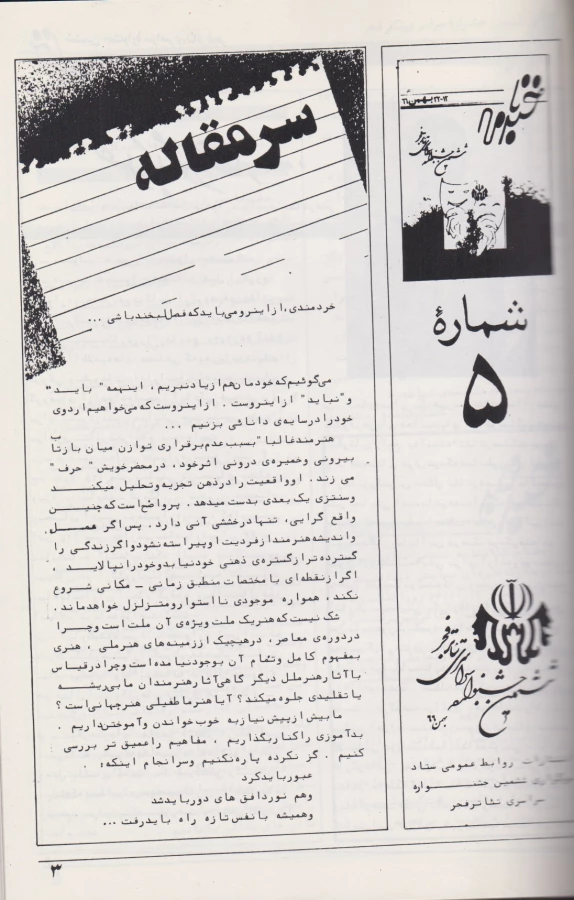 سرمقاله
خردمندی، از اینرو می‌باید که فصل لبخند باشی ...
می‌گوئیم که خودمان هم از یاد نبریم، اینهمه " باید "
و "نباید" از اینروست . از اینروست که می‌خواهیم اردوی
خود را در سایه‌ی دانائی بزنیم ...
هنرمند غالبا" بسبب عدم برقراری توازن میان بازتاب
بیرونی و خمیره‌ی درونی اثر خود، در محضر خویش " حرف "
می زند. او واقعیت را در ذهن تجزیه و تحلیل میکند
و سنتزی یک بعدی بدست میدهد. پر واضح است که چنین
واقع گرایی، تنها درخششی آنی دارد. پس اگر عمل
و اندیشه هنرمند از فردیت او پیراسته نشود و اگر زندگی را
گسترده تر از گستره‌ی ذهنی خود نیابد و خود را نپالاید ،
اگر از نقطه‌ای با مختصات منطبق زمانی ـ مکانی شروع
نکند، همواره موجودی نااستوار و متزلزل خواهد ماند.
شک نیست که هنر یک ملت ویژه‌ی آن ملت است و چرا
در دوره‌ی معاصر، در هیچیک از زمینه‌های هنر ملی ، هنری
بمفهوم کامل و تمام آن بوجود نیامده است و چرا در قیاس
با آثار هنر ملل دیگر گاهی آثار هنرمندان ما بی‌ریشه
یا تقلیدی جلوه میکند؟ آیا هنر ما طفیلی هنر جهانی است؟
ما بیش از پیش نیاز به خوب خواندن و آموختن داریم .
بدآموزی را کنار بگذاریم ، مفاهیم را عمیق تر بررسی
کنیم . گز نکرده پاره نکنیم و سرانجام اینکه: .
عبور باید کرد
و هم نورد افق های دور باید شد
و همیشه با نفس تازه راه باید رفت ...
خبرنامه
۱۲-۲۲ بهمن ۶۶
ششمین جشنواره سراسری تئاتر فجر
شمارهٔ
۵
ششمین جشنواره سراسری تئاتر فجر
بهمن ۶۶
روابط عمومی ستاد
برگزاری ششمین جشنواره
سراسری تئاتر فجر
۳